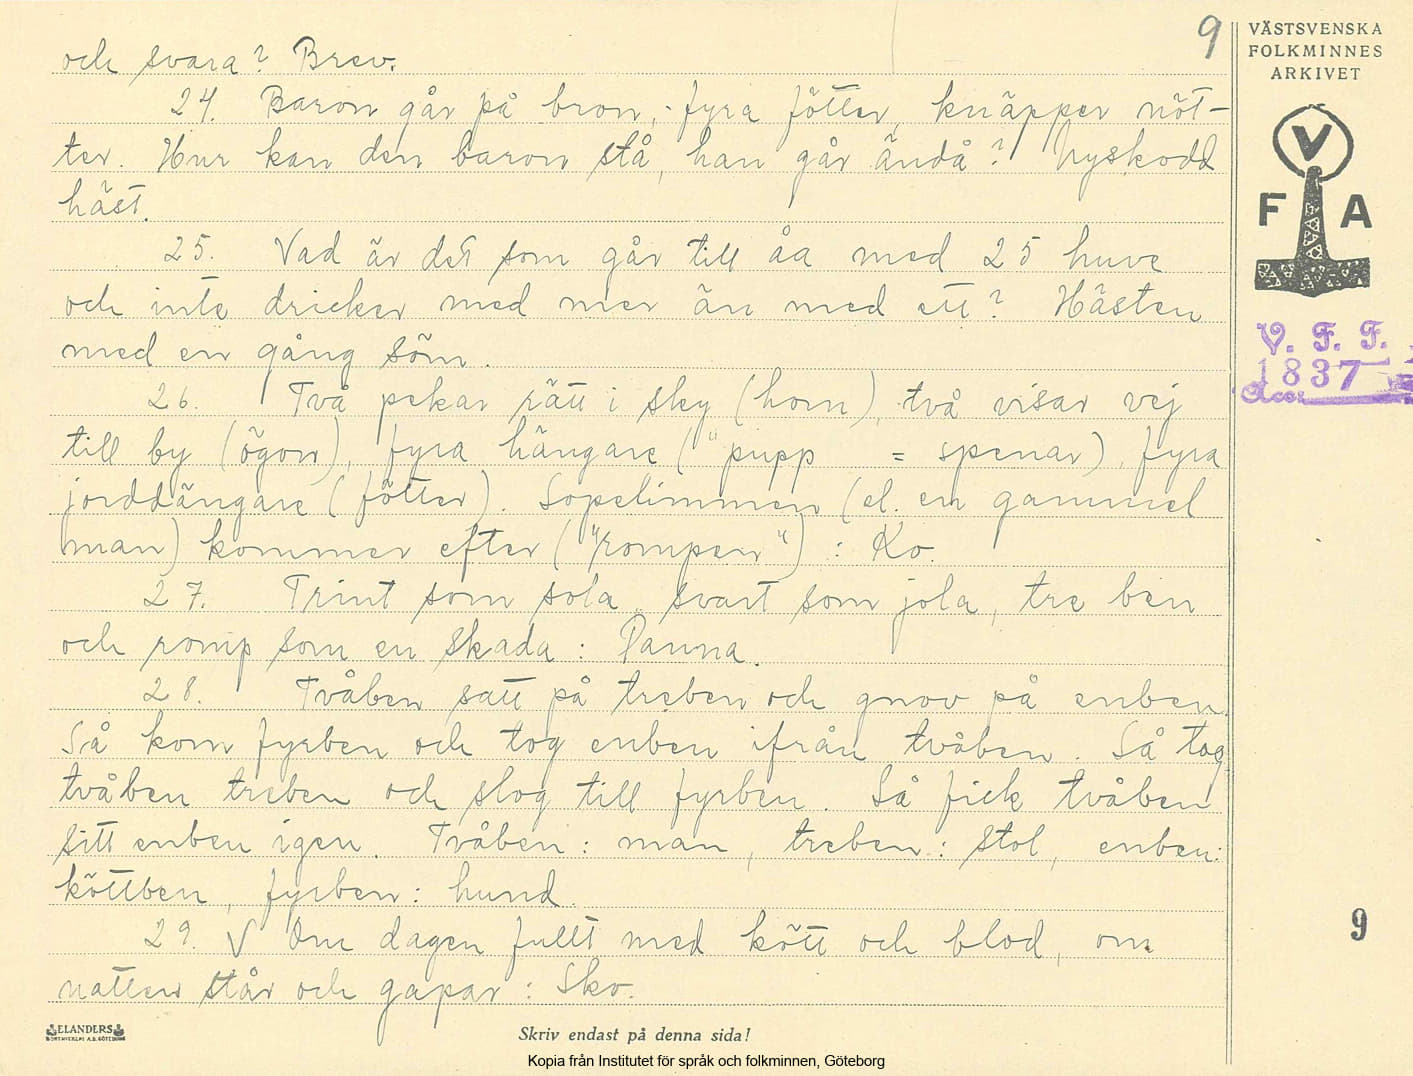 9
VÄSTSVENSKA
FOLKMINNES
ARKIVET
V
F A
V. F. F.
1837
och svara? Brev.
24. Baron går på bron, fyra fötter, knäpper nöt-
ter. Hur kan den baron stå, han går ändå? Nyskodd
häst.
25. Vad är det som går till åa med 25 huve
och inte dricker med mer än med ett? Hästen
med en gång söm.
26. Två pekar rätt i sky (horn), två visar vej
till by (ögon), fyra hängare ("pupp = spenar), fyra
jorddängare (fötter). Sopelimmen (el. en gammel
man) kommer efter ("rompen") : Ko.
27. Trint som sola, svart som jola, tre ben
och romp som en skada : Panna.
28. Tvåben satt på treben och gnov på enben.
Så kom fyrben och tog enben ifrån tvåben. Så tog
tvåben treben och slog till fyrben. Så fick tvåben
sitt enben igen. Tvåben : man, treben : stol, enben:
köttben, fyrben : hund.
29. V Om dagen fullt med kött och blod, om
natten står och gapar : Sko.
9
ELANDERS
Skriv endast på denna sida!
Kopia från Institutet för språk och folkminnen, Göteborg